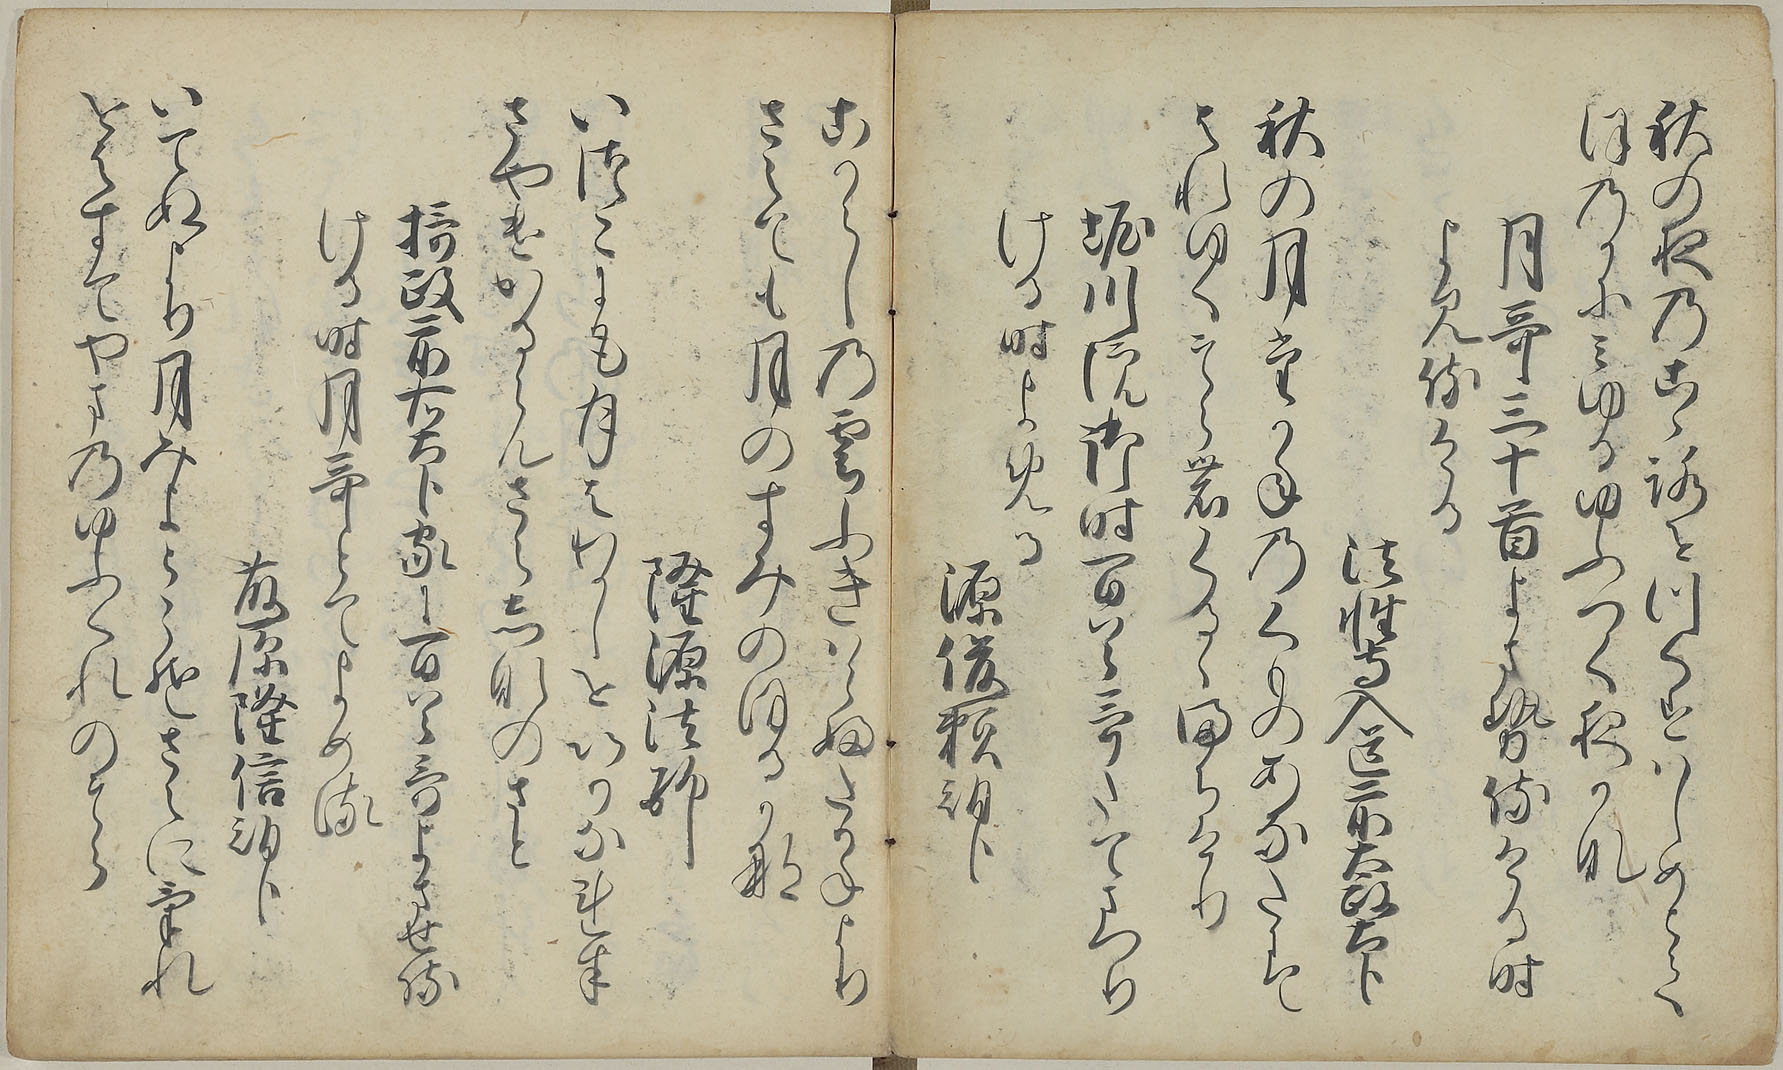 秋の夜乃こゝろをつくすはしめとて
ほのかにみゆるゆふつく夜かな
月哥三十首よませ侍ける時
よみ侍ける
法性寺入道前太政大臣
秋の月たかねのくものあなたにて
はれゆくそらのくるゝまちけり
堀川院御時百首哥たてまつり
ける時よめる
源俊頼朝臣
こからしの雲ふきはらふたかねより
さえても月のすみのほるかな
隆源法師
いつこにも月はわかしをいかなれは
さやけかるらんさらしなのさと
摂政前右大臣家に百首哥よませ侍
ける時月哥とてよめる
藤原隆信朝臣
いてぬより月みよとこそさえにけれ
をはすてやまのゆふくれのそら